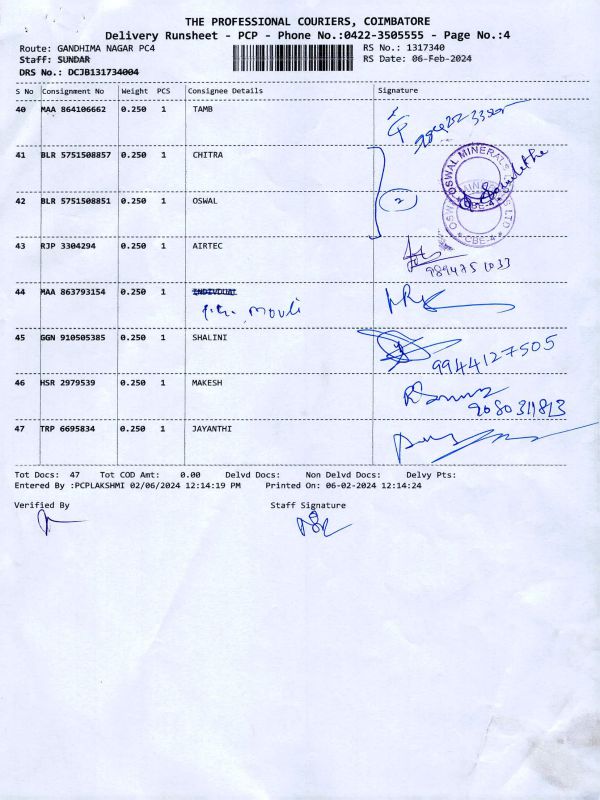 THE PROFESSIONAL COURIERS, COIMBATORE
Delivery Runsheet - PCP - Phone No.:0422-3505555 - Page No.:4
Route: GANDHIMA NAGAR PC4 RS No.: 1317340
Staff: SUNDAR RS Date: 06-Feb-2024
DRS No.: DCJB131734004
S No Consignment No Weight PCS Consignee Details Signature
40 MAA 864106662 0.250 1 TAMB
41 BLR 5751508857 0.250 1 CHITRA
42 BLR 5751508851 0.250 1 OSWAL 2
OSWAL MINERALS
CBE-4
43 RJP 3304294 0.250 1 AIRTEC
9894751033
44 MAA 863793154 0.250 1 INDIVDUAL
Mouli
45 GGN 910505385 0.250 1 SHALINI
9944127505
46 HSR 2979539 0.250 1 MAKESH
9080311813
47 TRP 6695834 0.250 1 JAYANTHI
Tot Docs: 47 Tot COD Amt: 0.00 Delvd Docs: Non Delvd Docs: Delvy Pts:
Entered By :PCPLAKSHMI 02/06/2024 12:14:19 PM Printed On: 06-02-2024 12:14:24
Verified By Staff Signature